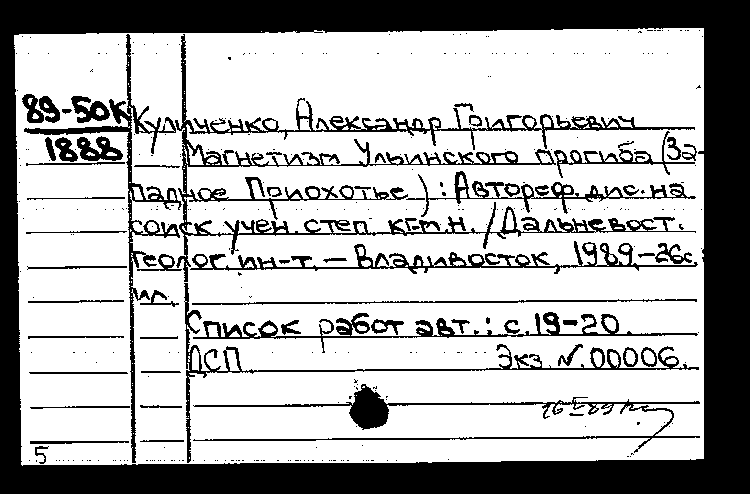 89-50К Куличенко, Александр Григорьевич
1888 Магнетизм Ульинского прогиба (За-
падное Приохотье) : Автореф. дис. на
соиск. учен. степ. к.г-м.н. / Дальневост.
геолог. ин-т. — Владивосток, 1989. — 26с. :
ил.
Список работ авт.: с. 19-20.
ДСП Экз. №. 00006.
5